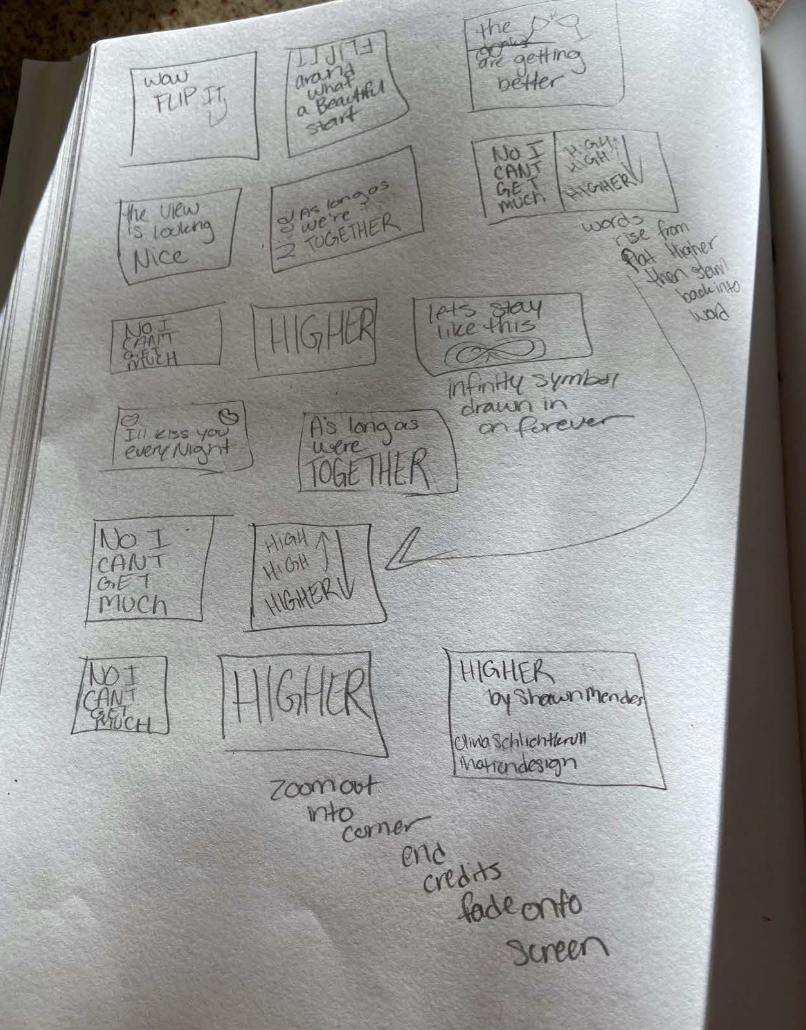 wow
FLIP IT
FLIP IT
arand
what
a Beautiful
start
the
are getting
better
the view
is looking
Nice
As long as
we're
TOGETHER
NO I
CANT
GET
Much
HIGH
HIGH
HIGHER
words
rise from
Higher
then
back into
word
NO I
CAN'T
GET
MUCH
HIGHER
lets stay
like this
infinity symbol
drawn in
on forever
I'll kiss you
every Night
As long as
were
TOGETHER
NO I
CANT
GET
Much
HIGH
HIGH
HIGHER
NO I
CANT
GET
MUCH
HIGHER
HIGHER
by Shawn Mendes
Motiondesign
zoom out
into
corner
end
credits
fade onto
screen